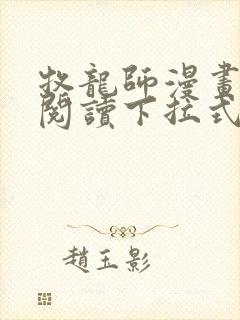 牧龍師漫畫
閱讀下拉式
趙玉影